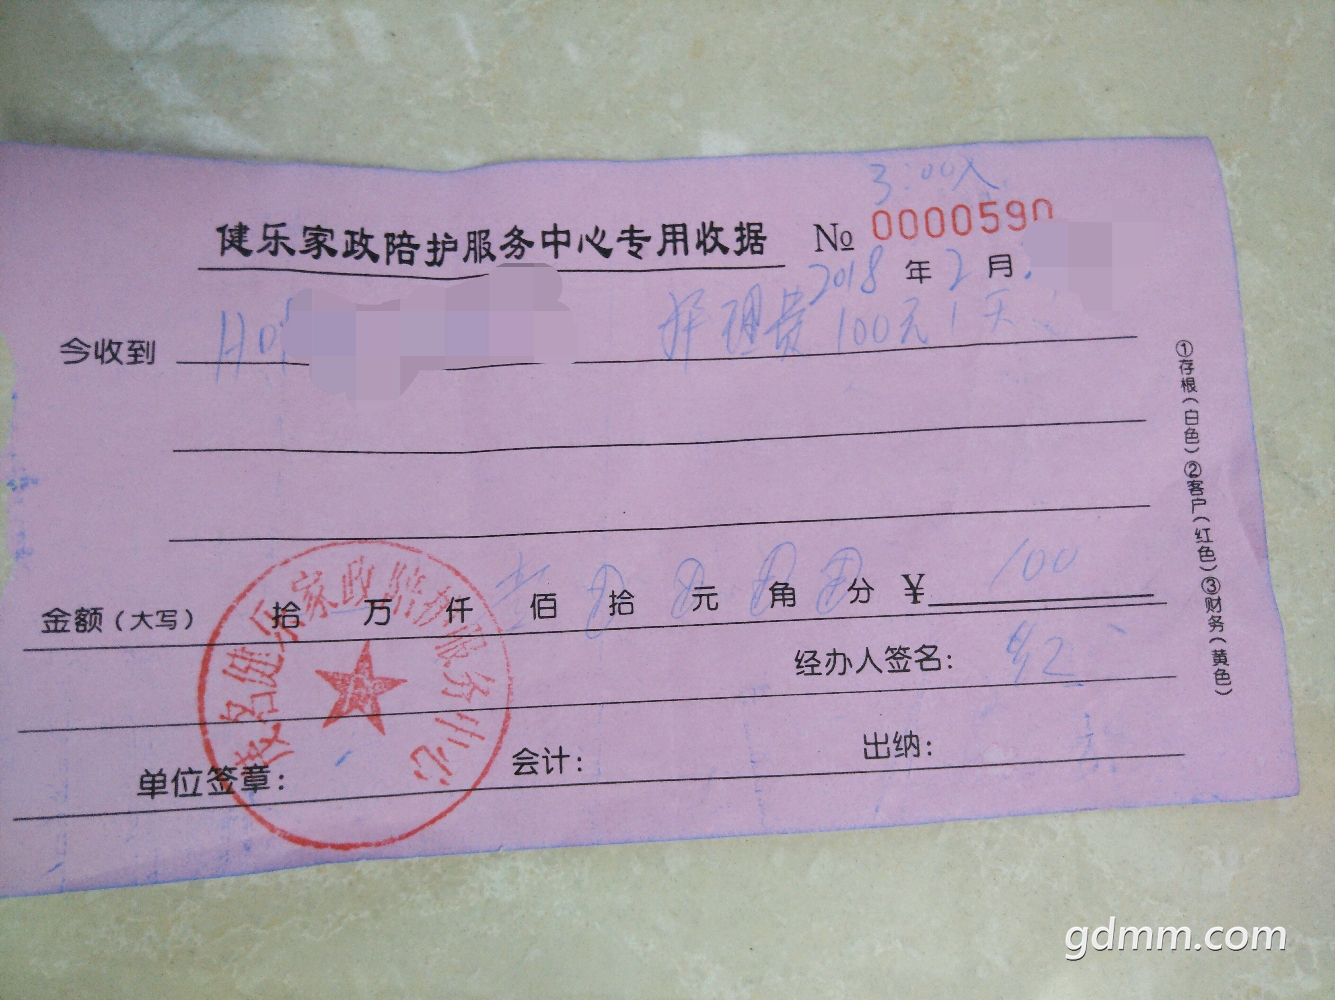 3:00入
健乐家政陪护服务中心专用收据 № 0000590
2018年2月
今收到 护理费100元1天
金额(大写) 拾 万 仟 壹佰 拾 元 角 分 ¥ 100
经办人签名:
单位签章: 会计: 出纳:
茂名健乐家政陪护服务中心
①存根(白色)②客户(红色)③财务(黄色)
gdmm.com